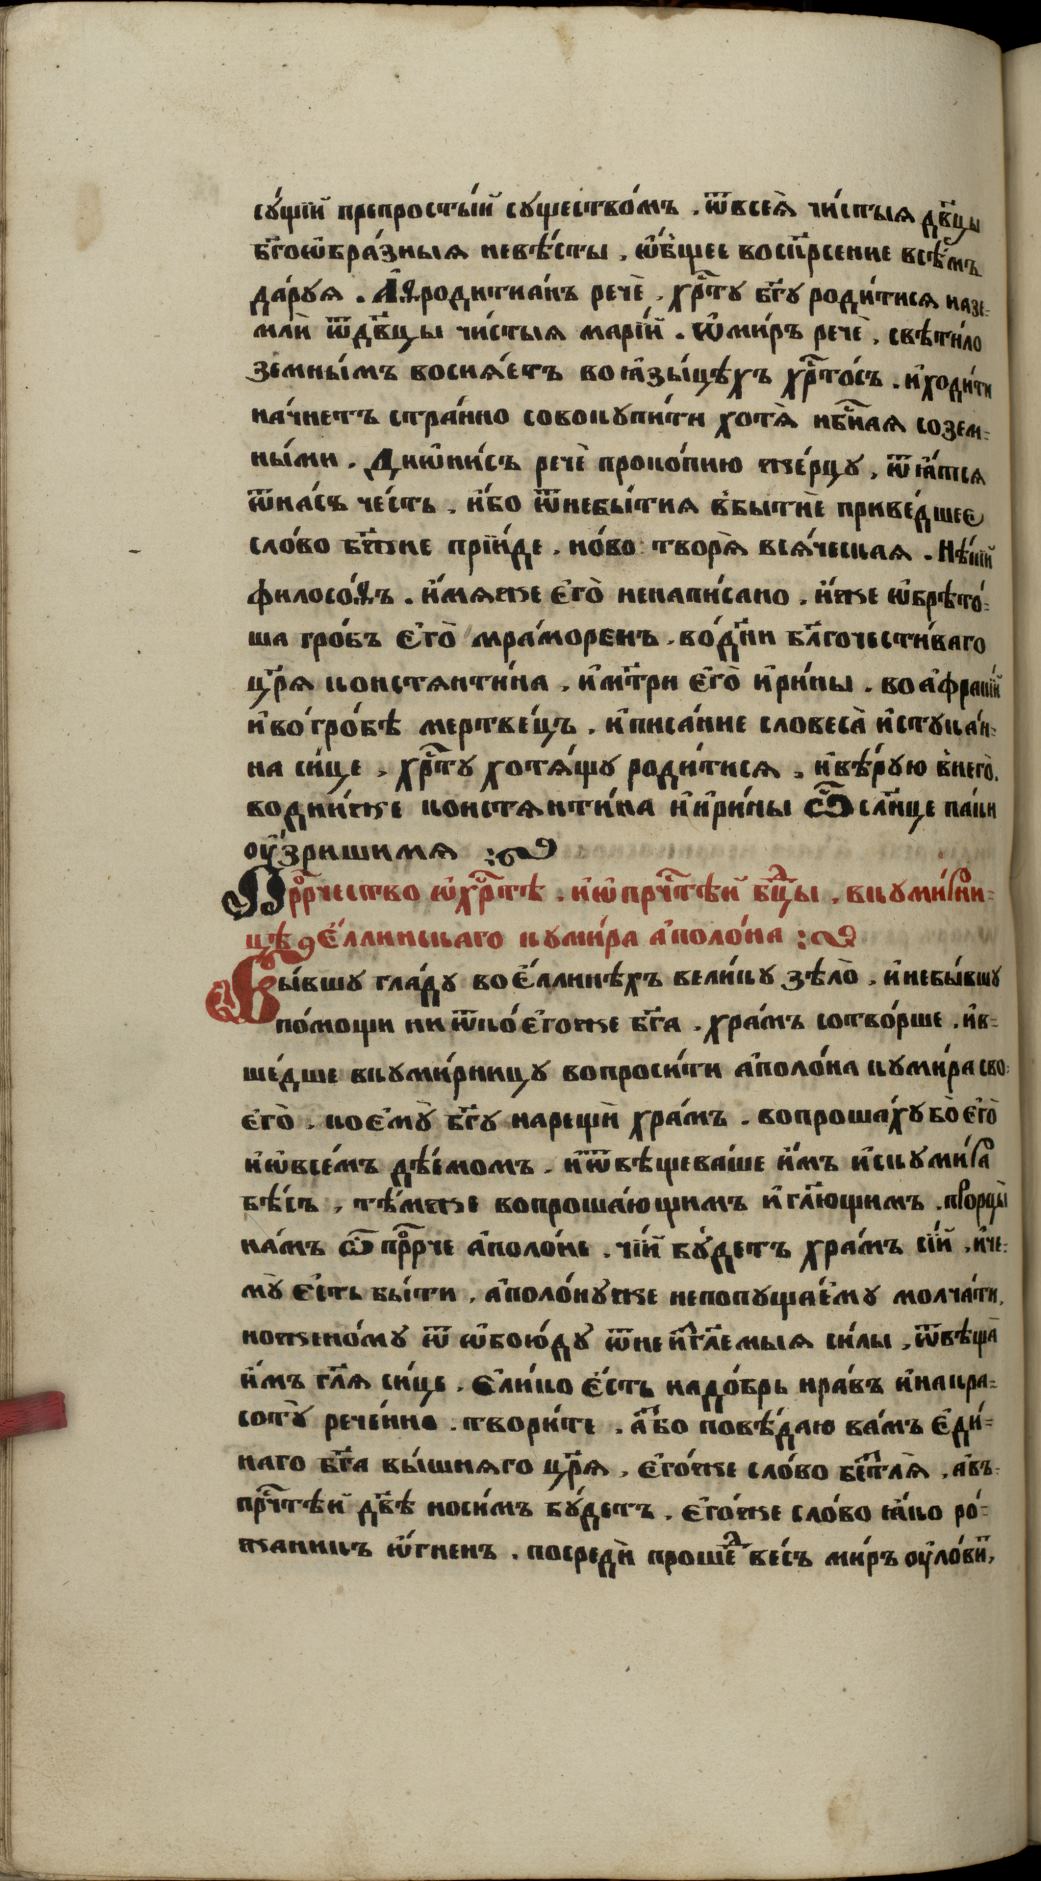 сꙋ́щїи препросты́й сꙋщество́мъ . ѿвсеѧ̀ чи́стыѧ дв҃цы
бг҃оѡбра́зныѧ невѣ́сты , ѡ҆́бщее воскр҃сенїе всѣ́мъ
да́рꙋѧ . А҆ѳродитиа́нъ речѐ , хрⷭ҇тꙋ бг҃ꙋ роди́тисѧ назе-
млѝ ѿдв҃цы чи́стыѧ марі́й . Ѻ҆ми́ръ речѐ , свѣти́ло
земны́мъ восиѧ́етъ воꙗ҆зы́цѣхъ хрⷭ҇то́съ . и҆ходи́ти
на́чнетъ стра́нно совокꙋпи́ти хотѧ̀ нбⷭ҇наѧ созем-
ны́ми . Дїѡни́съ речѐ прокопию же́рцꙋ , ѿꙗ́тсѧ
ѿна́съ че́сть . и҆́бо ѿнебы́тиѧ вбытїѐ приве́дшее
сло́во бж҃ие прїи́де . но́во творѧ̀ всѧ́ческаѧ . Нѣ́кїй
филосо́ѳъ . и҆́мѧже є҆го̀ ненапи́сано . и҆́же ѡ҆брѣто́-
ша гро́бъ є҆го̀ мра́моренъ . во́дн҃и бл҃гочести́ваго
цр҃ѧ констѧнти́на , и҆мт҃ри є҆го̀ и҆ри́ны . воа҆фраки́й
и҆во́гро́бѣ мертве́цъ , и҆писа́нїе словеса̀ и҆стꙋка́н-
на си́це , хрⷭ҇тꙋ хотѧ́щꙋ роди́тисѧ , и҆вѣ́рꙋю в̾него̀ ,
воднѝже констѧнти́на и҆и҆ри́ны ѽ сл҃нце па́ки
оу҆́зришимѧ :
Прⷪ҇рчество ѡ҆хрⷭ҇тѣ . и҆ѡ҆прчⷭ҇тѣй бцⷣы , вкꙋми́рни-
цѣ є҆́ллинскаго кꙋми́ра а҆поло́на :
Бы́вшꙋ гла́дꙋ воє҆́ллинѣхъ вели́кꙋ ѕѣло̀ , и҆небы́вшꙋ
по́мощи ни ѿко́єгоже бг҃а . хра́мъ сотво́рше . и҆в-
ше́дше вкꙋми́рницꙋ вопроси́ти а҆поло́на кꙋми́ра сво-
єго̀ . коемꙋ̀ бг҃ꙋ нарещѝ хра́мъ . вопроша́хꙋ бо є҆го̀
и҆ѡ҆все́мъ дѣ́емомъ . и҆ѿвѣщева́ше и҆́мъ и҆скꙋми́ра
бѣ́съ , тѣ́мже вопроша́ющимъ и҆ гл҃ющимъ . прорцы̀
на́мъ ѽ прⷪ҇рче а҆поло́не . чїй бꙋ́детъ хра́мъ сі́й , и҆че-
мꙋ̀ є҆́сть бы́ти , а҆поло́нꙋже непопꙋща́емꙋ молча́ти ,
ноженомꙋ ѿ ѡ҆бою́дꙋ ѿне и҆зг҃лемыѧ си́лы , ѿвѣща̀
и҆́мъ гл҃ѧ си́це . є҆ли́ко є҆́сть надо́брь нра́въ и҆накра-
сотꙋ̀ рече́нно . твори́те . а҆́зⸯбо повѣ́даю ва́мъ є҆ди́-
наго бг҃а вы́шнѧго цр҃ѧ , є҆го́же сло́во безⸯлⷮѧ̀ , а҆въ
прчⷭ҇тѣй дв҃ѣ носи́мъ бꙋ́детъ . є҆го́же сло́во ꙗ҆́ко ро́-
жаникъ ѻ҆́гненъ . посредѝ прошеⷣ ве́съ ми́ръ оу҆лови́ⷡ ,